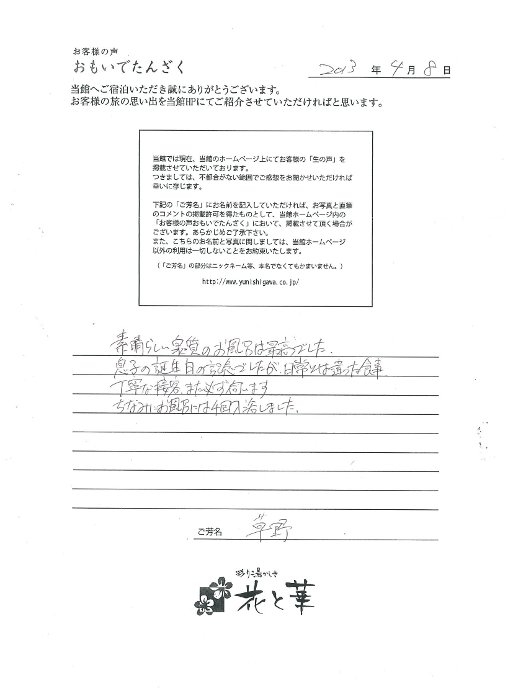 お客様の声
おもいでたんざく
2013 年 4 月 8 日
当館へご宿泊いただき誠にありがとうございます。
お客様の旅の思い出を当館HPにてご紹介させていただければと思います。
当館では現在、当館のホームページ上にてお客様の「生の声」を
掲載させていただいております。
つきましては、不都合がない範囲でご感想をお聞かせいただければ
幸いに存じます。
下記の「ご芳名」にお名前を記入していただければ、お写真と直筆
のコメントの掲載許可を得たものとして、当館ホームページ内の
「お客様の声おもいでたんざく」において、掲載させて頂く場合が
ございます。あらかじめご了承下さい。
また、こちらのお名前と写真に関しましては、当館ホームページ
以外の利用は一切しないことをお約束いたします。
(「ご芳名」の部分はニックネーム等、本名でなくてもかまいません。)
http://www.yunishigawa.co.jp/
素晴らしい泉質のお風呂は最高でした。
息子の誕生日の記念でしたが、日常とは違ったお食事
丁寧な接客、また必ず伺います
ちなみにお風呂には4回入浴しました。
ご芳名 草野
彩り湯かしき
花と華